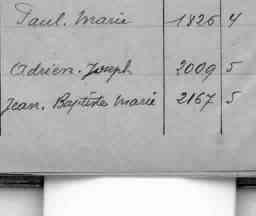 Paul. Marie 1826 4
Adrien. Joseph 2009 5
Jean. Baptiste Marie 2167 5